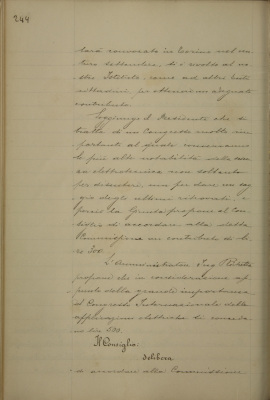 244
sarà convocato in Torino nel ven-
turo Settembre, si è rivolto al no-
stro Istituto, come ad altri Enti
cittadini, per ottenere un adeguato
contributo.
Soggiunge il Presidente che si
tratta di un Congresso molto im-
portante al quale converranno
le più alte notabilità della
elettrotecnica non soltanto
per discutere, ma per dare un sag-
gio degli ultimi ritrovati, e
perciò la Giunta propone al Con-
siglio di accordare alla detta
Commissione un contributo di Li-
re 300.
L'Amministratore Ing.
propone che in considerazione ap-
punto della grande importanza
del Congresso Internazionale delle
applicazioni elettriche si conceda-
no Lire 500.
Il Consiglio:
delibera
di accordare alla Commissione